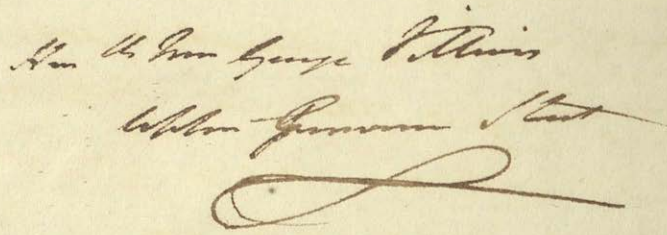 Hon & Mrs George Villiers
Upper Grosvenor Street